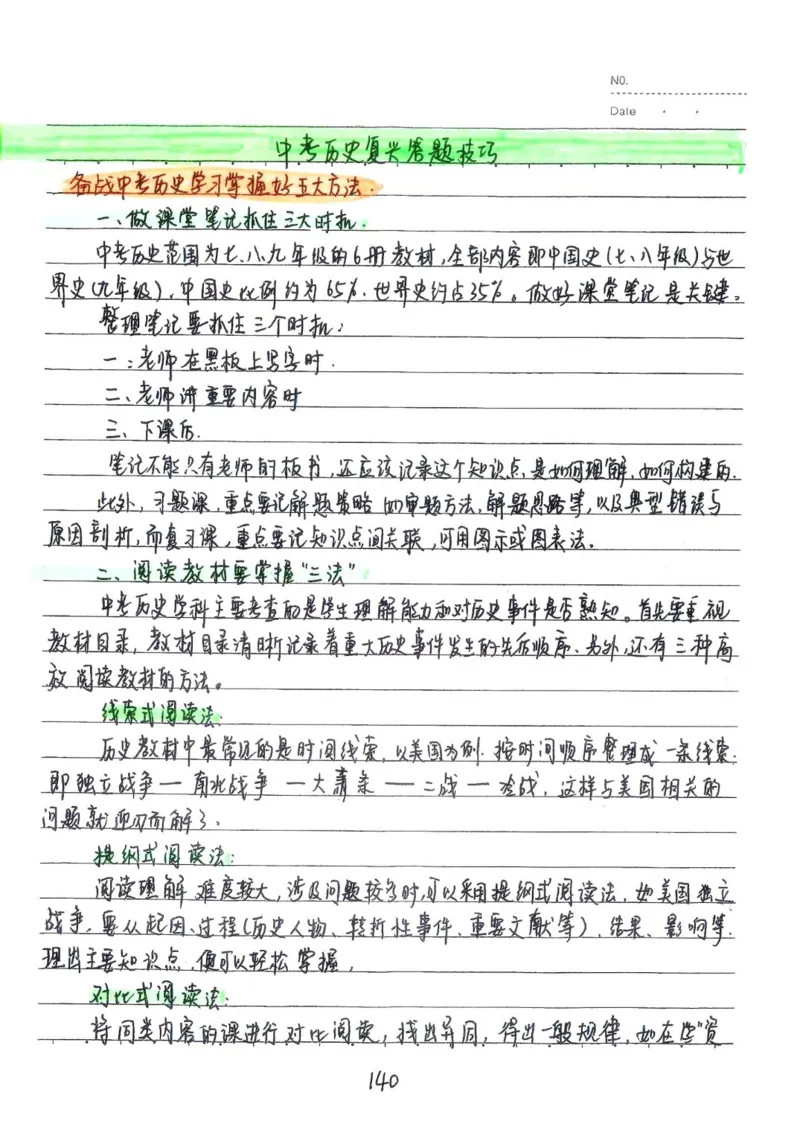 NO.
Date
中考历史复兴答题技巧
备战中考历史学习掌握好五大方法.
一、做课堂笔记抓住三大时机.
中考历史范围为七、八、九年级的6册教材,全部内容即中国史(七、八年级)与世
界史(九年级),中国史比例约为65%.世界史约占35%。做好课堂笔记是关键。
整理笔记要抓住三个时机:
一:老师在黑板上写字时.
二、老师讲重要内容时
三、下课后.
笔记不能只有老师的板书,还应该记录这个知识点是如何理解.如何构建的.
此外,习题课,重点要记解题策略 如审题方法.解题思路等,以及典型错误与
原因剖析,而复习课,重点要记知识点间关联,可用图示或图表法。
二、阅读教材要掌握“三法”
中考历史学科主要考查的是学生理解能力和对历史事件是否熟知。首先要重视
教材目录,教材目录清晰记录着重大历史事件发生的先后顺序、另外,还有三种高
效阅读教材的方法。
线索式阅读法:
历史教材中最常见的是时间线索,以美国为例.按时间顺序整理成一条线索.
即独立战争一南北战争一大萧条一二战一冷战,这样与美国相关的
问题就迎刃而解了.
提纲式阅读法:
阅读理解难度较大,涉及问题较多时,可以采用提纲式阅读法.如美国独立
战争,要从起因、过程(历史人物、转折性事件、重要文献等)、结果、影响等.
理出主要知识点,便可以轻松掌握,
对比式阅读法:
将同类内容的课进行对比阅读,找出异同,得出一般规律,如在些“资
140